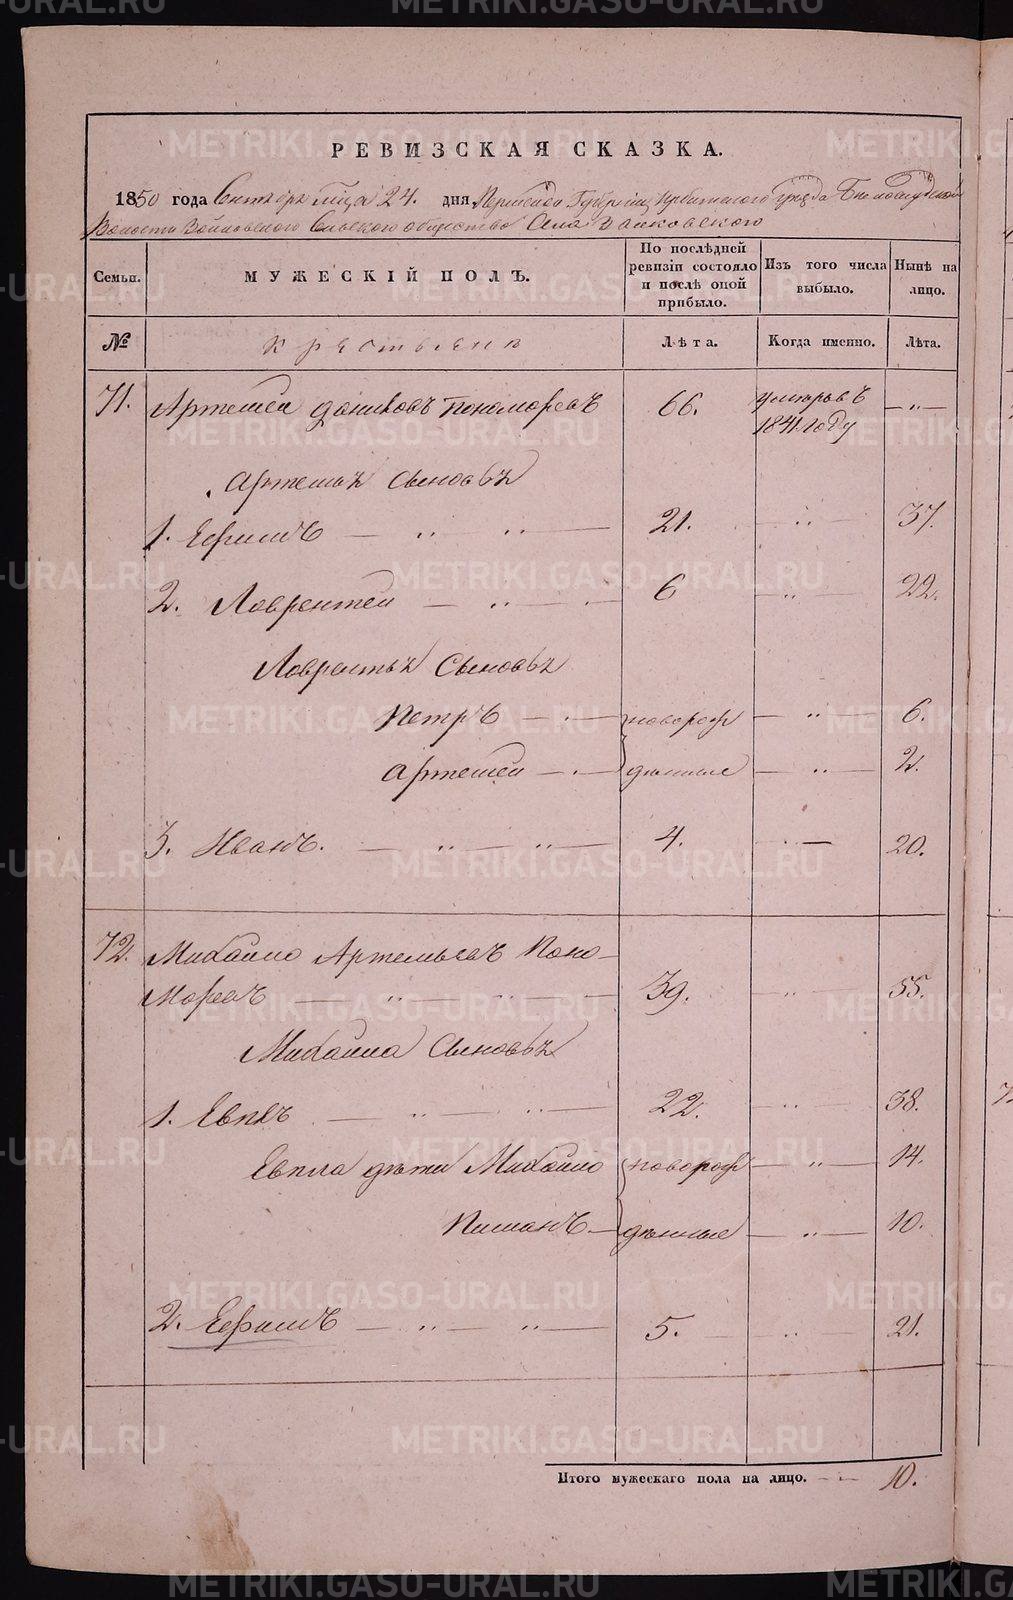 РЕВИЗСКАЯ СКАЗКА.
1850 года Сентября мѣсяца 24. дня, Пермской Губерніи Ирбитскаго уѣзда Бѣлослудской
Волости Зайковского Сельского общество Села Зайковского
Семьи. МУЖЕСКІЙ ПОЛЪ. По послѣдней ревизіи состояло и послѣ оной прибыло. Изъ того числа выбыло. Нынѣ на лицо.
№ крестьяне Лѣта. Когда именно. Лѣта.
71. Артемей Пономоревъ 66. умеръ въ 1841 году —„—
Артемья Сыновья
1. Ефимъ — „ „ — 21. — „ — 37.
2. Лаврентей — „ — 6 — „ — 22.
Лаврентья Сыновья
Петръ — „ — новорож — „ — 6.
Артемей — „ — дѣнные — „ — 2.
3. Иванъ. — „ — „ — 4. — „ — 20.
72. Михайло Артемьевъ Поно-
моревъ — „ — „ — 39. — „ — 55.
Михайла Сыновья
1. Евплъ — „ — „ — 22. — „ — 38.
Евпла дѣти Михайло новорож — „ — 14.
Пиманъ — дѣнные — „ — 10.
2. Ефимъ — „ — „ — 5. — „ — 21.
Итого мужескаго пола на лицо. — „ — 10.
METRIKI.GASO-URAL.RU